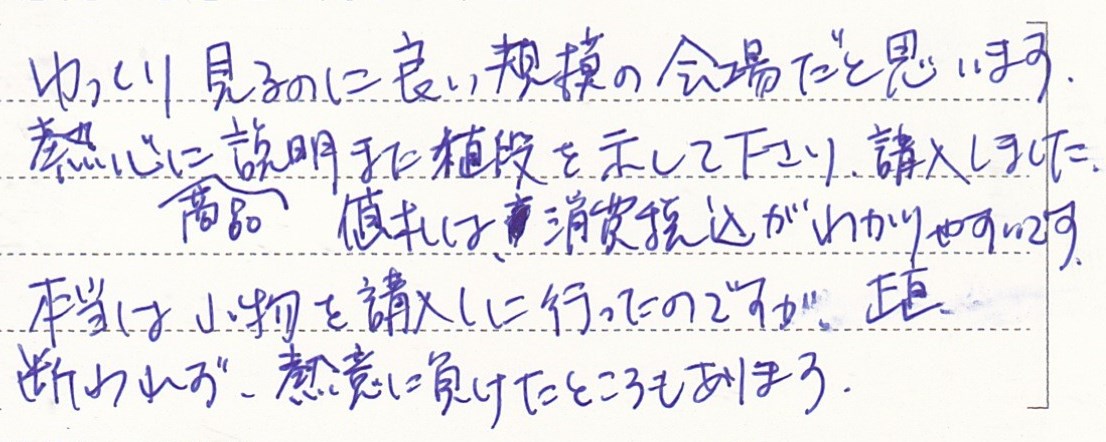 ゆっくり見るのに良い規模の会場だと思います.
熱心に説明また値段を示して下さり、講入しました.
商品 値札は、消費税込がわかりやすいです.
本当は小物を講入しに行ったのですが、正直、
断わわれず、熱意に負けたところもあります.